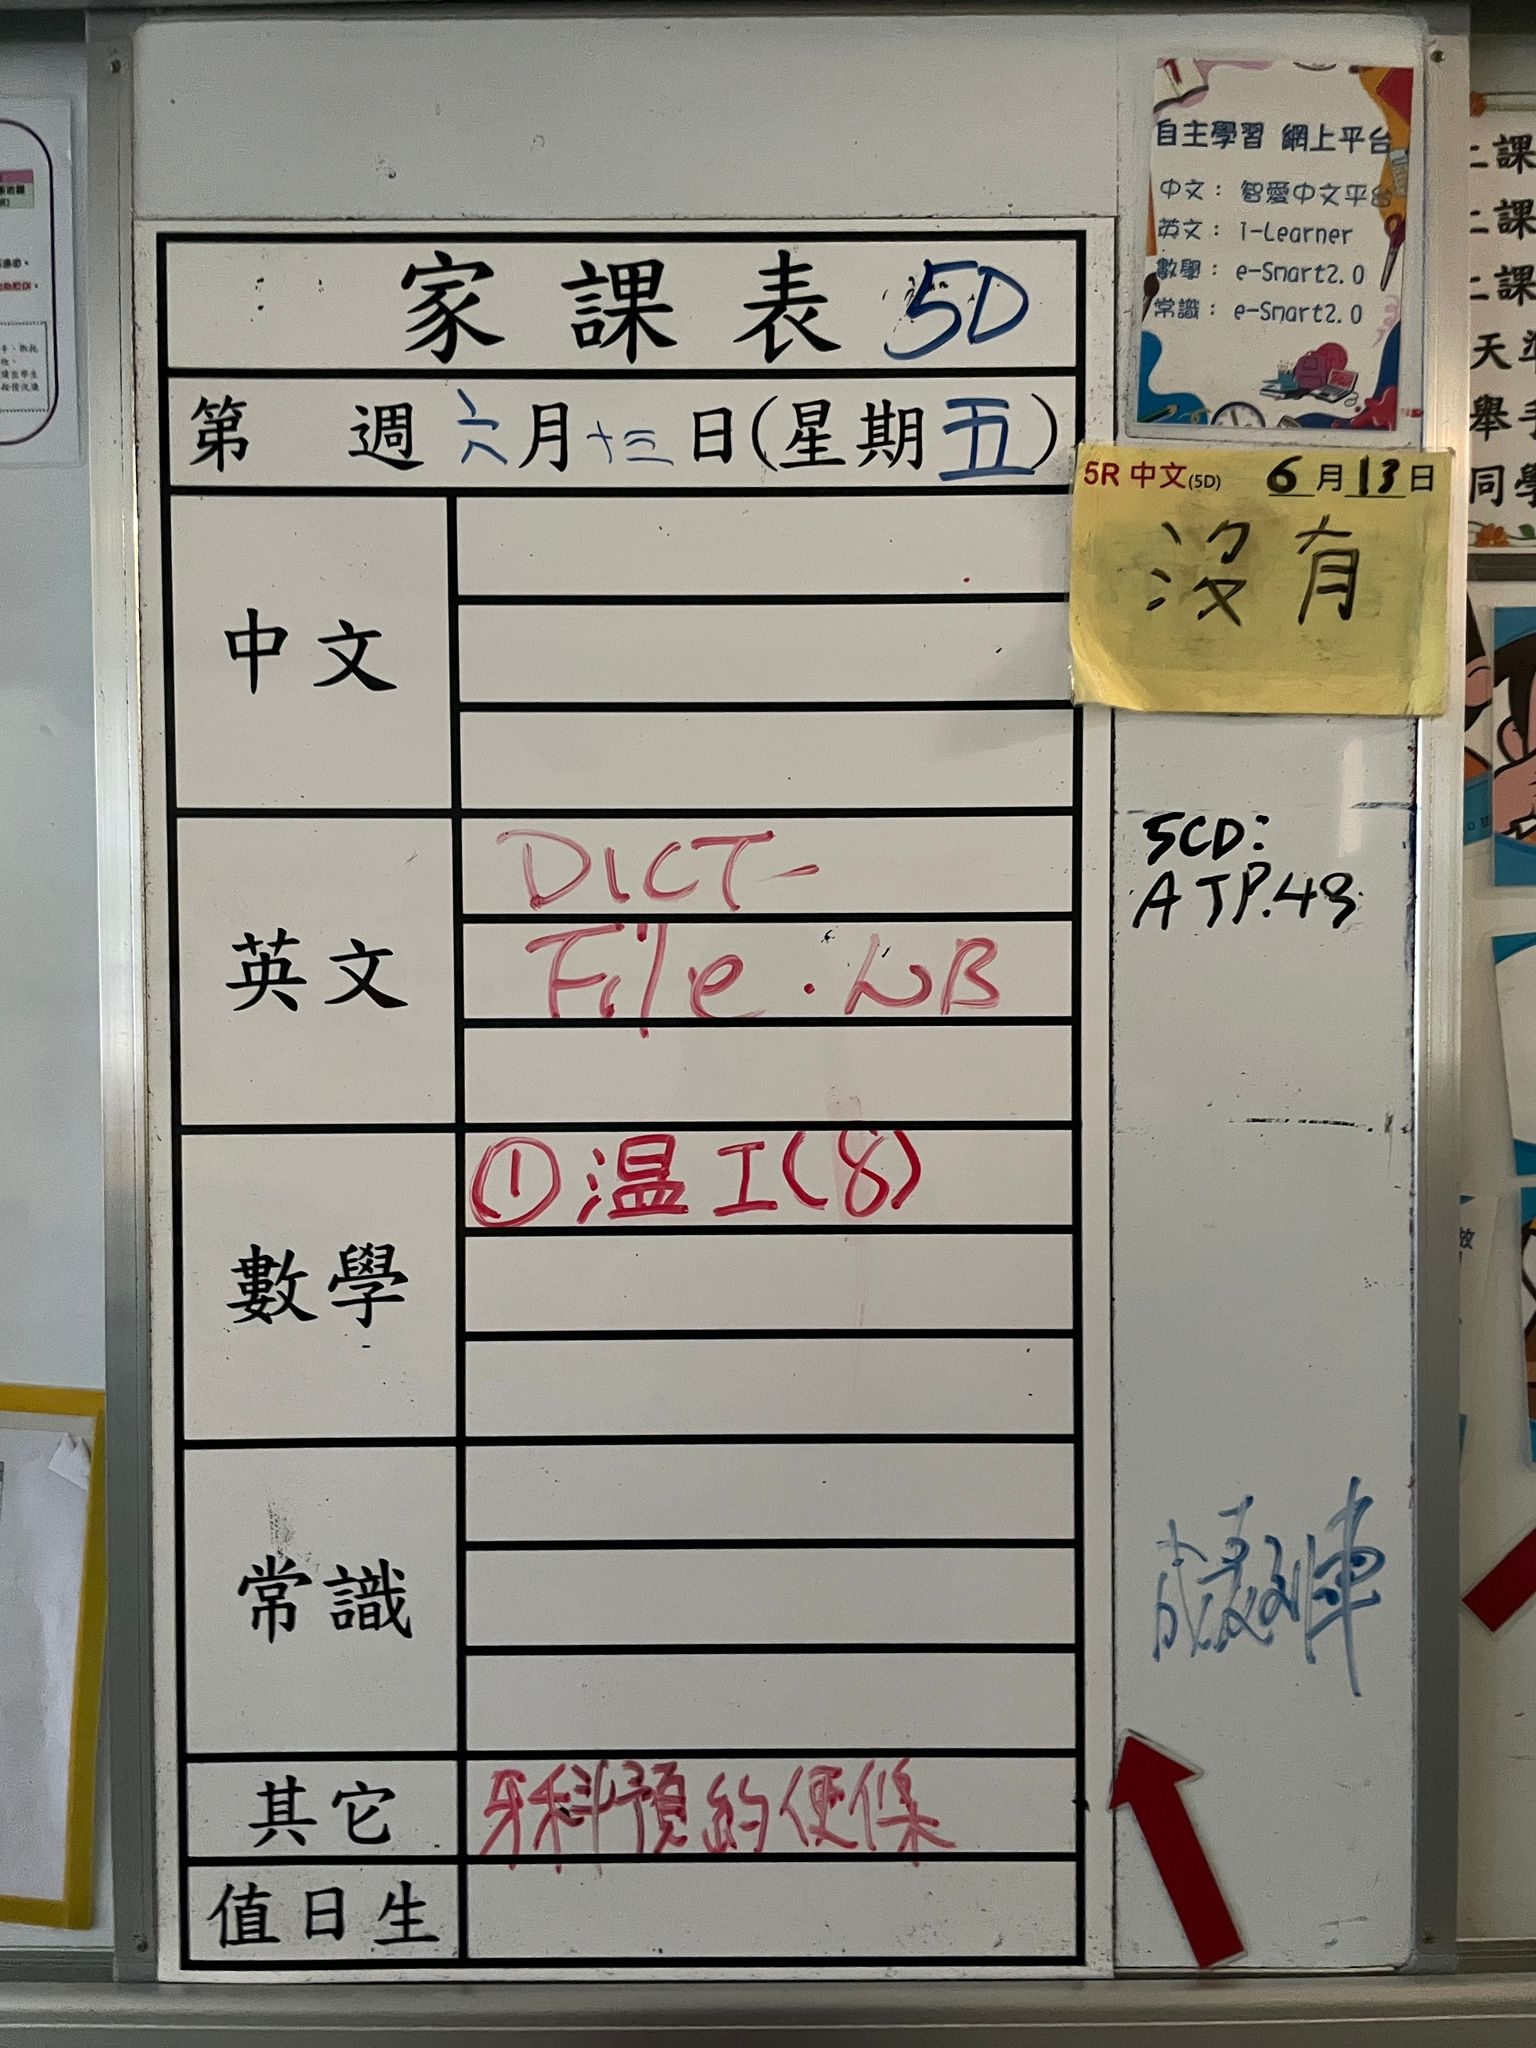 自主學習 網上平台
中文： 智愛中文平台
英文： i-Learner
數學： e-Smart2.0
常識： e-Smart2.0
家課表 5D
第 週 六月十三日(星期五)
5R 中文(5D) 6月13日
沒有
中文
英文
DICT-
File . NB
5CD:
A TP.49
數學
① 温工(8)
常識
其它
牙科預約便條
值日生
上課
上課
上課
天準
舉手
同學